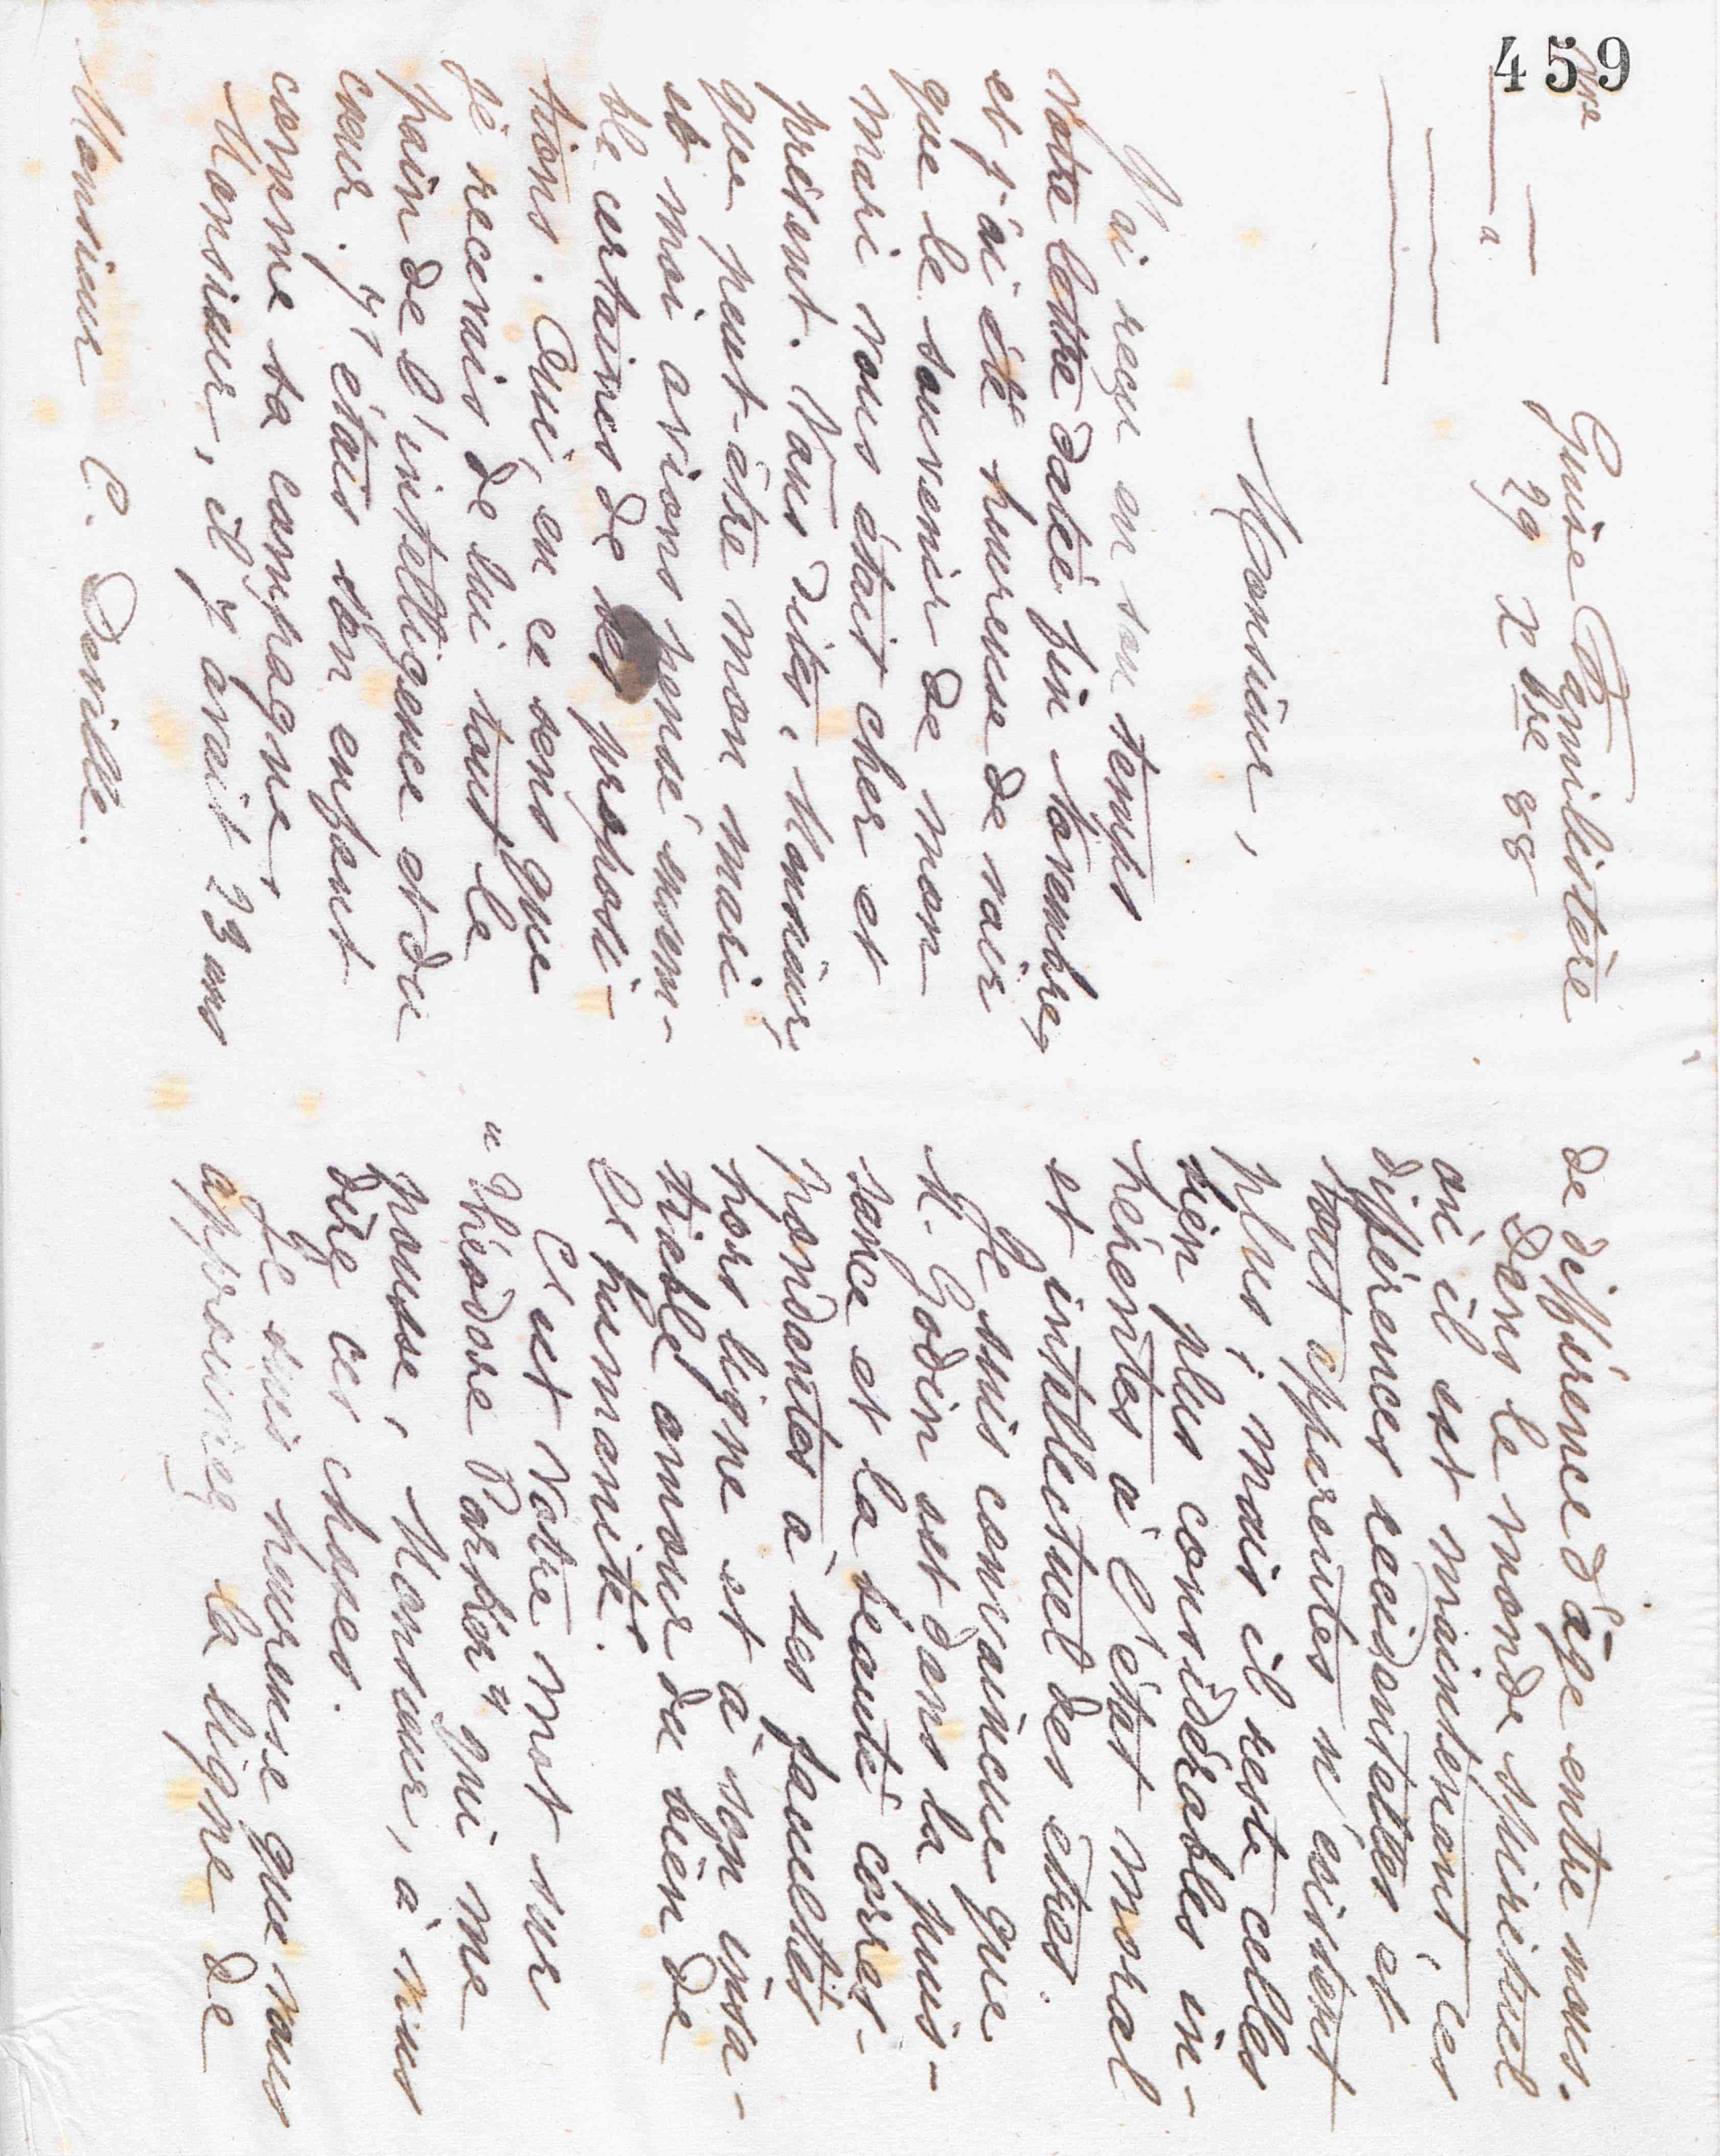 459
Guise Familistère
29 Xbre 88
Monsieur,
J'ai reçu en son temps
votre lettre datée fin Novembre,
et j'ai été heureuse de voir
que le souvenir de mon
mari vous était cher et
présent. Vous dites, Monsieur,
que peut-être mon mari
et moi avions pensé ensem-
ble certaines de ses proposi-
tions. Oui, en ce sens que
je recevais de lui tout le
pain de l'intelligence et du
cœur. J'étais son enfant
comme sa compagne,
Monsieur, il y avait 23 ans
Monsieur C. Deville.
de différence d'âge entre nous.
Dans le monde spirituel
où il est maintenant, ces
différences accidentelles et
tout apparentes n'existent
plus ; mais il reste celles
bien plus considérables in-
hérentes à l'état moral
et intellectuel des êtres.
Je suis convaincue que
M. Godin est dans la puis-
sance et la beauté corres-
pondantes à ses facultés
hors ligne et à son insa-
tiable amour du bien de
l'humanité.
C'est votre mot sur
"Théodore Parker" qui me
pousse, Monsieur, à vous
dire ces choses.
Je suis heureuse que vous
approuviez la ligne de